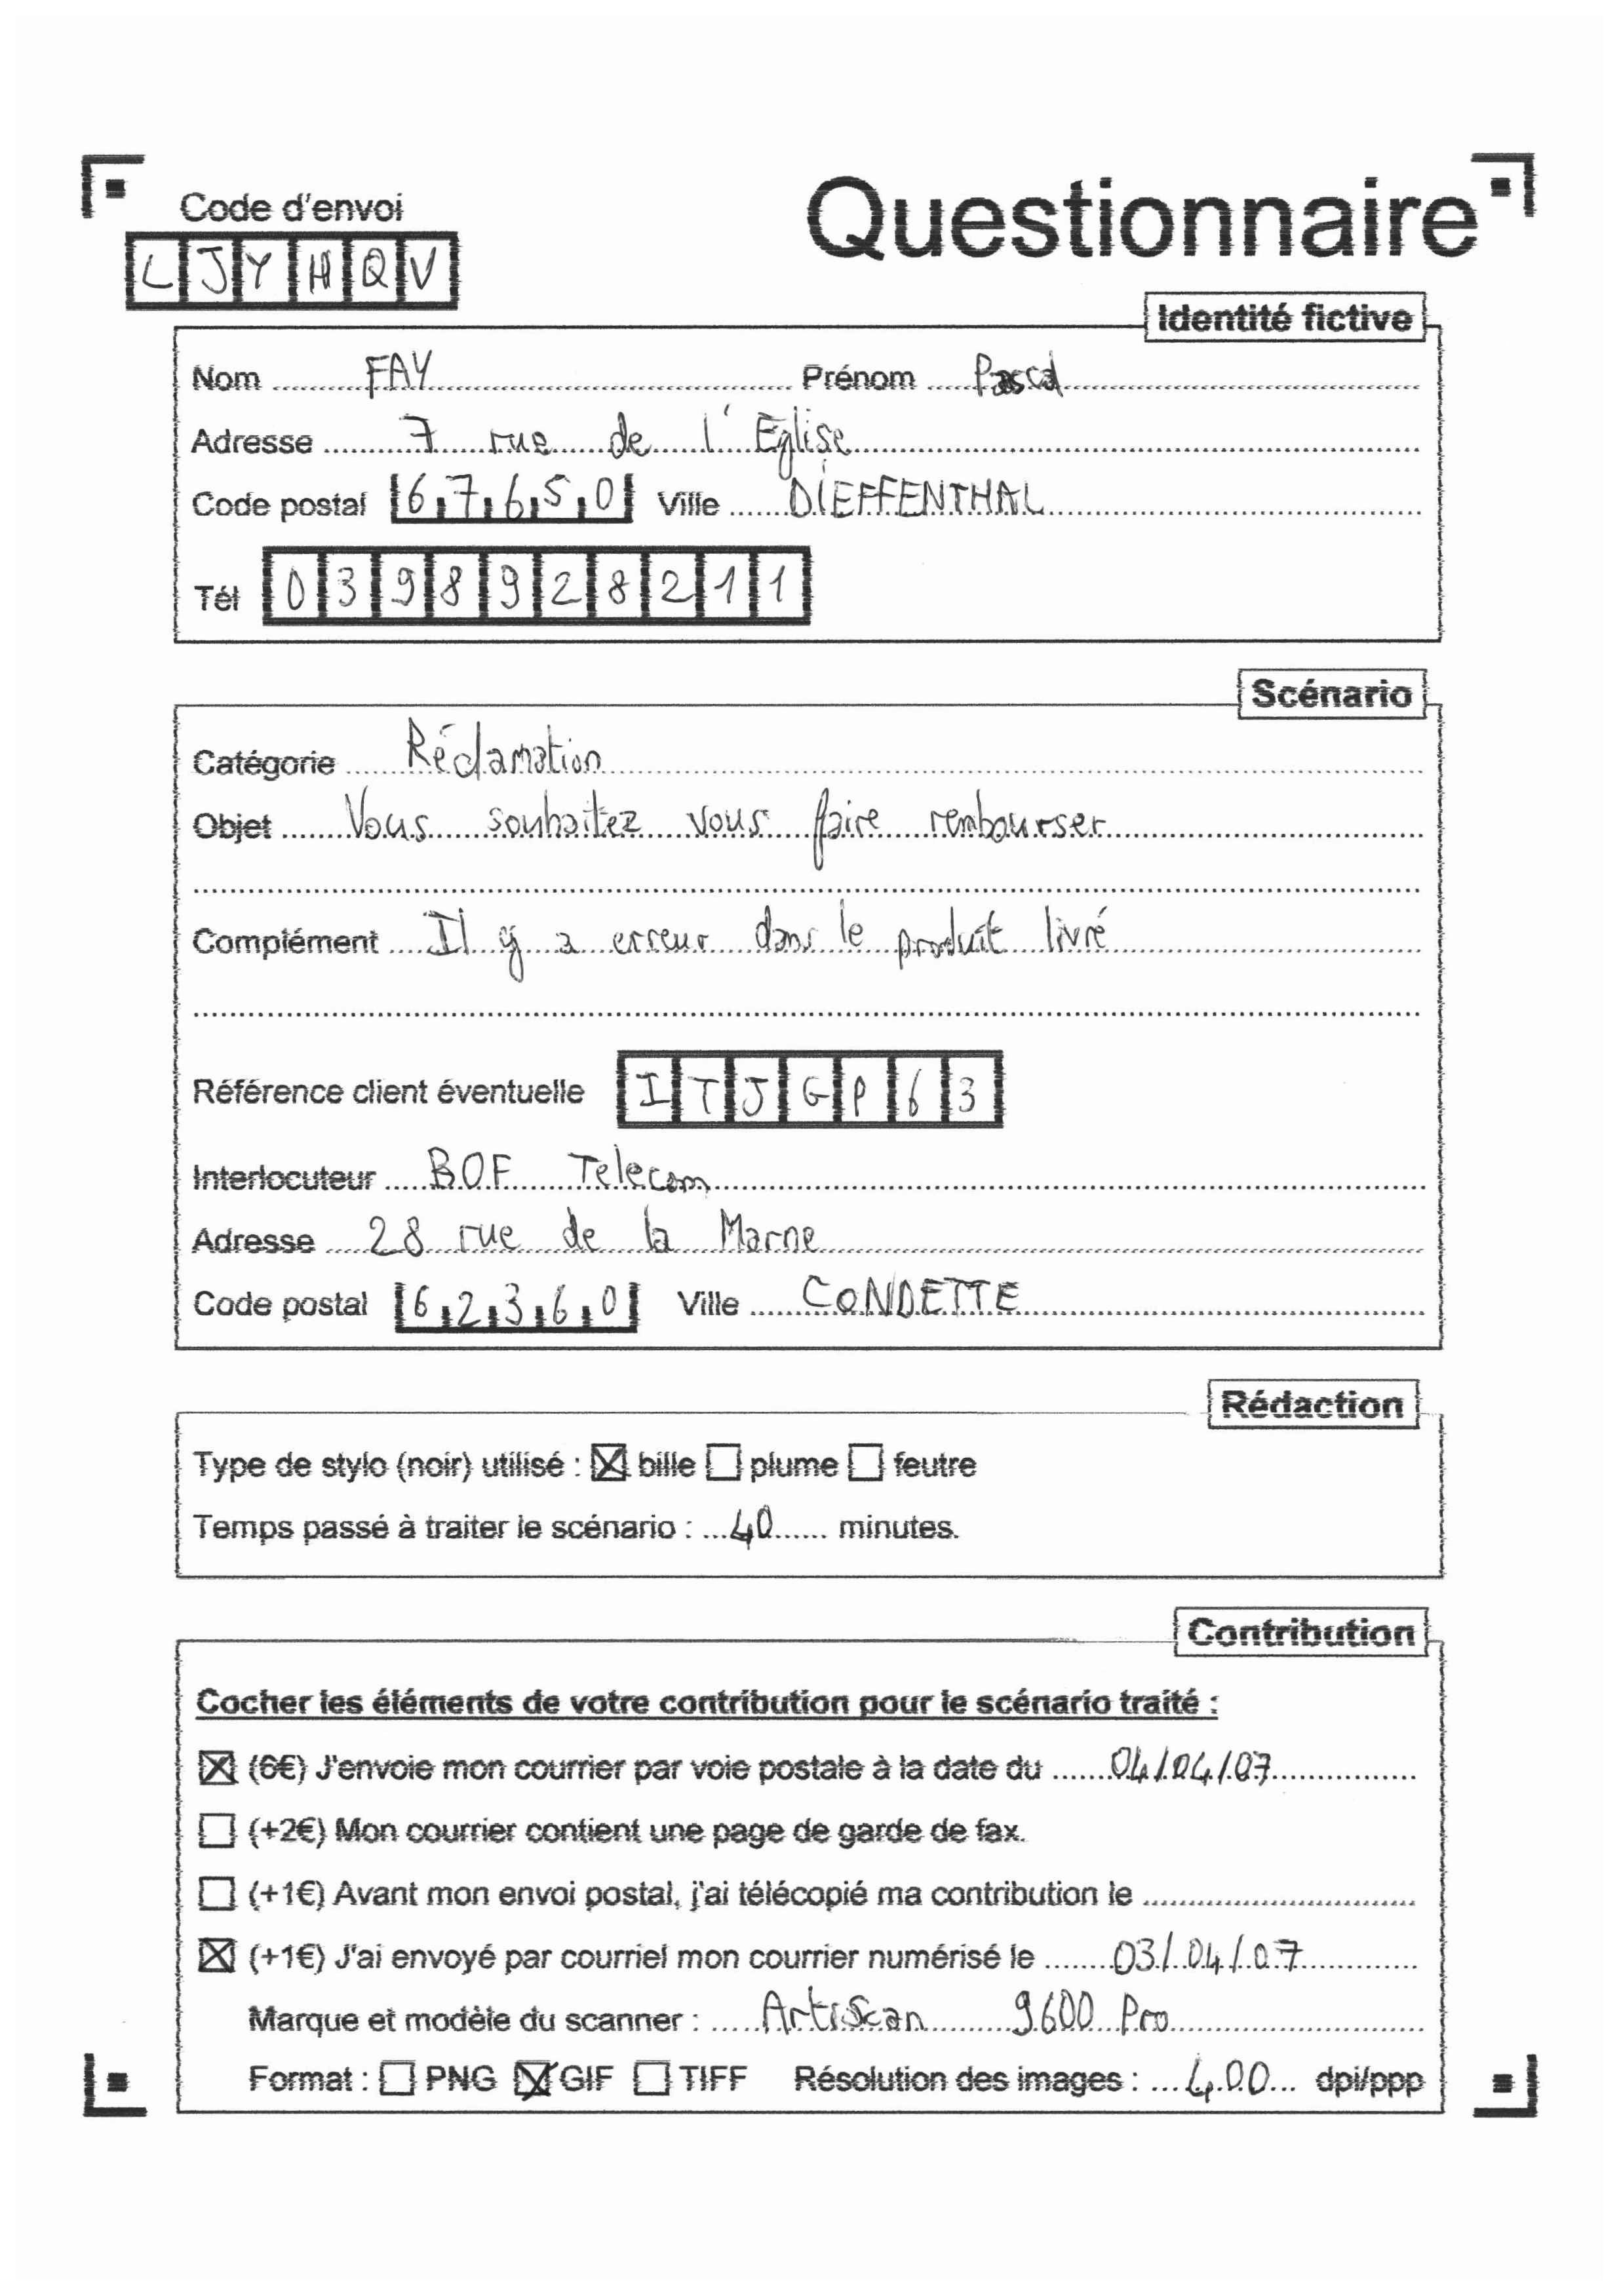 Code d'envoi
Questionnaire
LJYHQV
Identité fictive
Nom FAY Prénom Pascal
Adresse 7 rue de l'Eglise
Code postal 67650 Ville DIEFFENTHAL
Tél 0398928211
Scénario
Catégorie Réclamation
Objet Vous souhaitez vous faire rembourser
Complément Il y a erreur dans le produit livré
Référence client éventuelle ITJGP63
Interlocuteur BOF Telecom
Adresse 28 rue de la Marne
Code postal 62360 Ville CONDETTE
Rédaction
Type de stylo (noir) utilisé : bille plume feutre
Temps passé à traiter le scénario : 40 minutes.
Contribution
Cocher les éléments de votre contribution pour le scénario traité :
(6€) J'envoie mon courrier par voie postale à la date du 04/04/07
(+2€) Mon courrier contient une page de garde de fax.
(+1€) Avant mon envoi postal, j'ai télécopié ma contribution le
(+1€) J'ai envoyé par courriel mon courrier numérisé le 03/04/07
Marque et modèle du scanner : ArtiScan 9600 Pro
Format : PNG GIF TIFF Résolution des images : 400 dpi/ppp